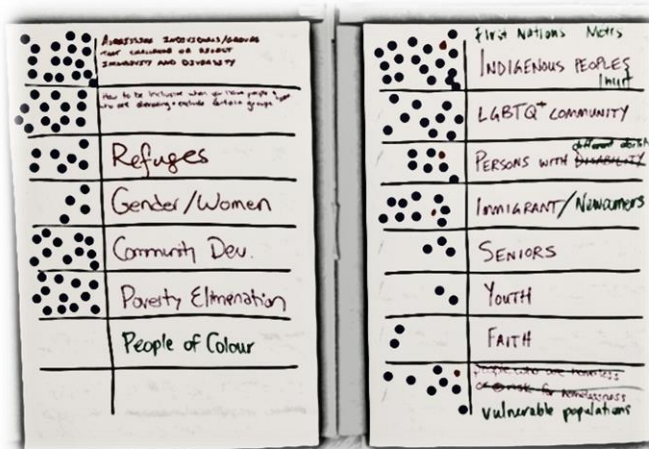 ADDRESSING INDIVIDUALS/GROUPS
THAT CHALLENGE OR RESIST
IMMUNITY AND DIVERSITY
How to be inclusive when you have people
who are dividing + exclude certain groups
Refuges
Gender/Women
Community Dev.
Poverty Elimenation
People of Colour
First Nations Metis
INDIGENOUS PEOPLES
Inuit
LGBTQ+ COMMUNITY
different
PERSONS WITH DISABILITY
IMMIGRANT/Newcomers
SENIORS
YOUTH
FAITH
People who are homeless
or @ risk for homelessness
vulnerable populations